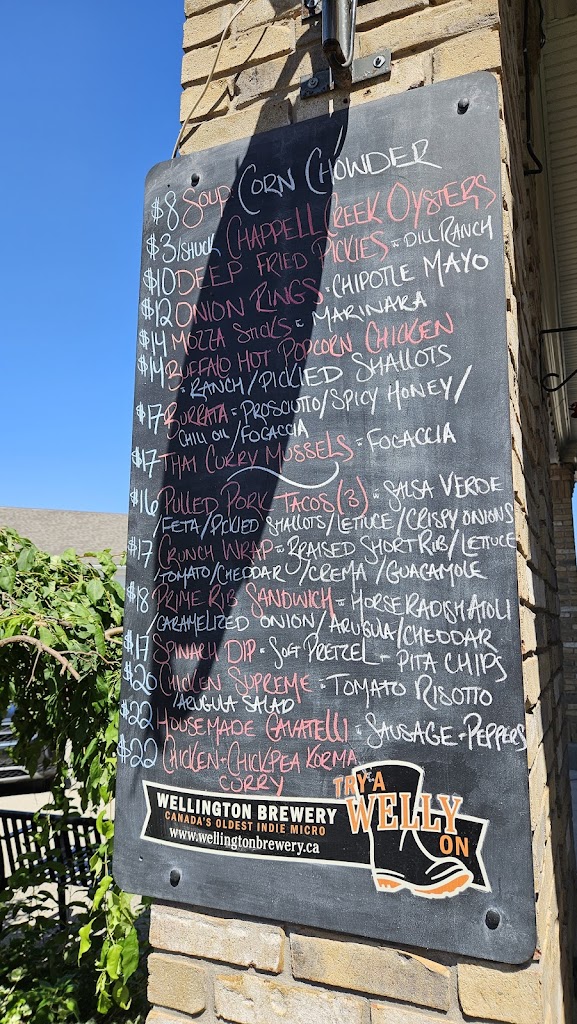 $8 SOUP CORN CHOWDER
$3/SHUCK CHAPPELL CREEK OYSTERS
$10 DEEP FRIED PICKLES - DILL RANCH
$12 ONION RINGS - CHIPOTLE MAYO
$14 MOZZA STICKS - MARINARA
$14 BUFFALO HOT POPCORN CHICKEN
- RANCH/PICKLED SHALLOTS
$17 BURRATA - PROSCIUTTO/SPICY HONEY/
CHILI OIL/FOGACCIA
$17 THAI CURRY MUSSELS - FOGACCIA
$16 PULLED PORK TACOS (3) - SALSA VERDE
/FETA/PICKLED SHALLOTS/LETUCE/CRISPY ONIONS
$17 CRUNCH WRAP - BRAISED SHORT RIB/LETTUCE
/TOMATO/CHEDDAR/CREMA/GUACAMOLE
$18 PRIME RIB SANDWICH - HORSERADISH AIOLI
/CARAMELIZED ONION/ARUGULA/CHEDDAR
$17 SPINACH DIP - SOFT PRETZEL - PITA CHIPS
$20 CHICKEN SUPREME - TOMATO RISOTTO
/ARUGULA SALAD
$22 HOUSEMADE CAVATELLI - SAUSAGE - PEPPERS
$22 CHICKEN - CHICKPEA KORMA
CURRY
TRY A
WELLY
ON
WELLINGTON BREWERY
CANADA'S OLDEST INDIE MICRO
www.wellingtonbrewery.ca